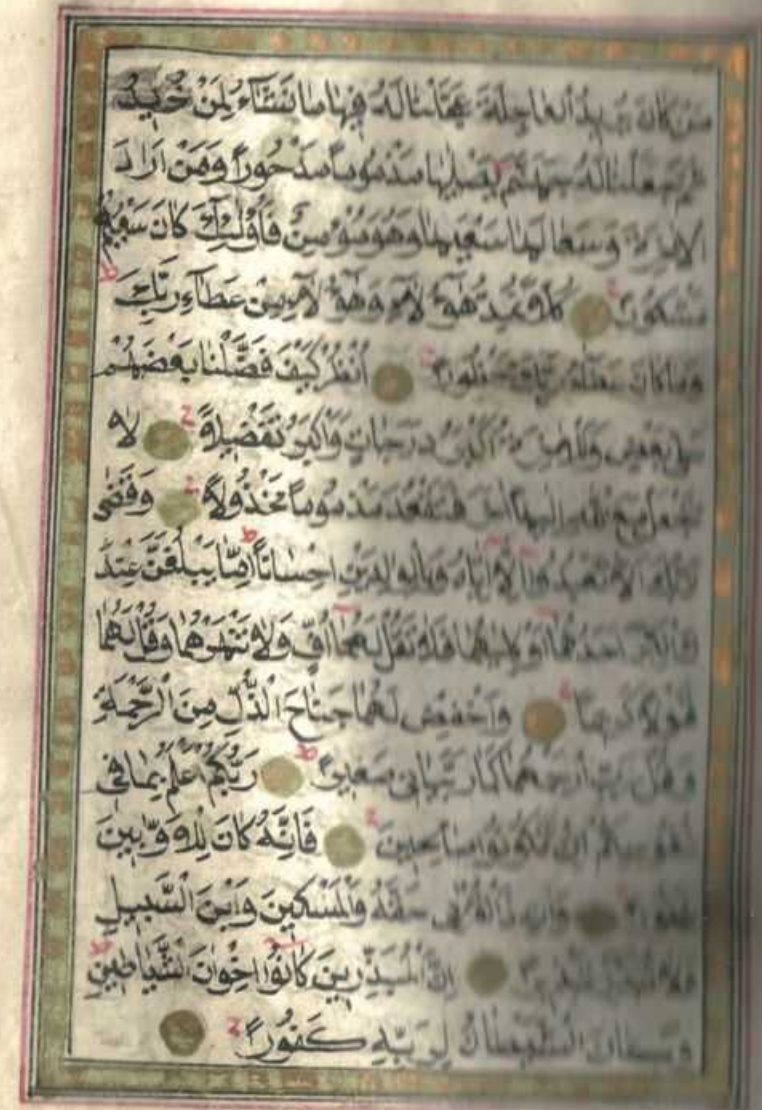 من كان يريد العاجلة عجلنا له فيها ما نشاء لمن نريد
ثم جعلنا له جهنم يصليها مذموماً مدحوراً ومن اراد
الاخرة وسعا لها سعيها وهو مؤمن فاولئك كان سعيهم
مشكوراً كلا نمد هؤلاء وهؤلاء من عطاء ربك
وما كان عطاء ربك محظوراً انظر كيف فضلنا بعضهم
على بعض وللاخرة اكبر درجات واكبر تفضيلاً لا
تجعل مع الله الها اخر فتقعد مذموماً مخذولاً وقضى
ربك الا تعبدوا الا اياه وبالوالدين احساناً اما يبلغن عندك
الكبر احدهما او كلاهما فلا تقل لهما اف ولا تنهرهما وقل لهما
قولاً كريماً واخفض لهما جناح الذل من الرحمة
وقل رب ارحمهما كما ربياني صغيراً ربكم اعلم بما في
نفوسكم ان تكونوا صالحين فانه كان للاوابين
غفوراً وات ذا القربى حقه والمسكين وابن السبيل
ولا تبذر تبذيراً ان المبذرين كانوا اخوان الشياطين
وكان الشيطان لربه كفوراً